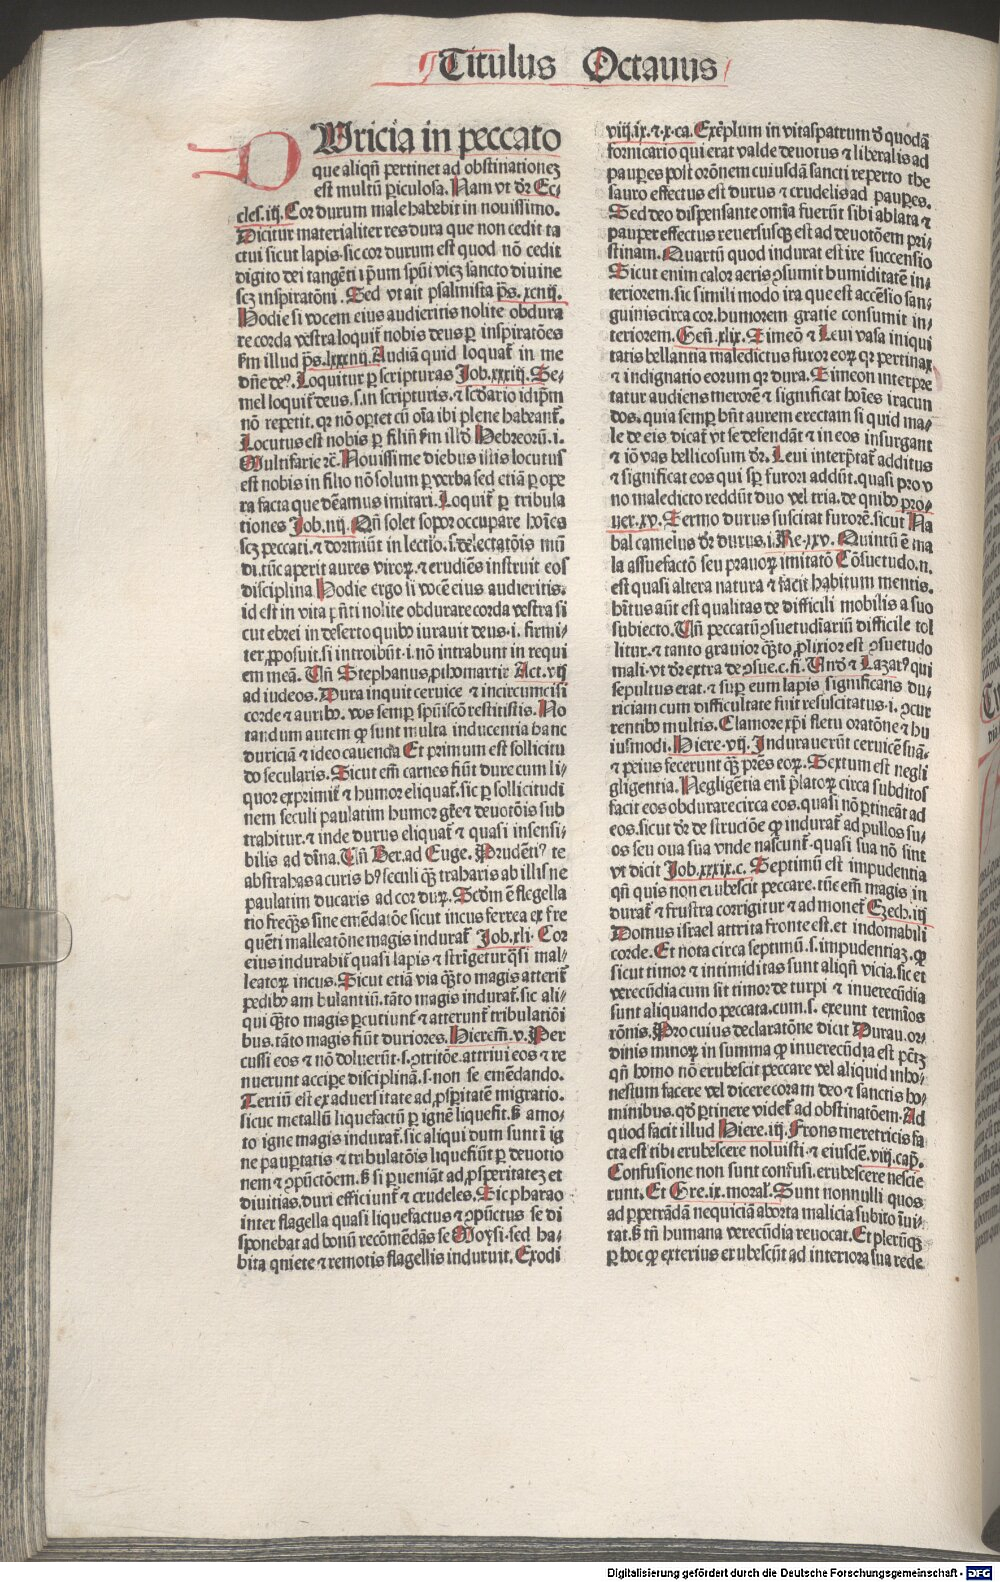 Titulus Octauus
DVricia in peccato
que aliqñ pertinet ad obstinationeꝫ
est multũ ꝑiculosa. Nam vt dr̃ Ec-
cles.iij. Cor durum male habebit in nouissimo.
Dicitur materialiter res dura que non cedit ta
ctui sicut lapis. sic cor durum est quod nõ cedit
digito dei tangẽti ip̃um sp̃ui vicꝫ sancto diuine
scꝫ inspiratõni. Sed vt ait psalmista p̃s.xciiij.
Hodie si vocem eius audieritis nolite obdura
re corda vestra loquit᷑ nobis deus ꝑ inspiratões
ẽm illud p̃s.lxxxiiij. Audiã quid loquat᷑ in me
dñe deꝰ. Loquitur ꝑ scripturas Job.xxxiij. Se-
mel loquit᷑ deus.s.in scripturis.⁊ scďario idip̃m
nõ repetit. qꝛ nõ oportet cũ oĩa ibi plene habeant᷑.
Locutus est nobis ꝑ filiũ ẽm illď Hebreorũ.i.
Multifarie ⁊c̃. Nouissime diebus illis locutus
est nobis in filio nõ solum ꝑ verba sed etiã ꝑ ope
ra facta que deẽamus imitari. Loquit᷑ ꝑ tribula
tiones Job.iiij. Qñ solet sopor occupare hoĩes
scꝫ peccati.⁊ dormiũt in lectio.s.delectatõis mũ
di.tũc aperit aures viroꝝ.⁊ erudiẽs instruit eos
disciplina Hodie ergo si vocẽ eius audieritis.
id est in vita p̃ñti nolite obdurare corda vestra si
cut ebrei in deserto quibꝰ iurauit deus.i. firmi-
ter ꝓposuit.si introibũt.i.nõ intrabunt in requi
em meã. Uñ Stephanus ꝓthomartir Act.vij
ad iudeos. Dura inquit ceruice ⁊ incircumcisi
corde ⁊ auribꝰ. vos semꝑ sp̃uiscõ restitistis. No
tandum autem ꝙ sunt multa inducentia hanc
duriciã ⁊ ideo cauenda Et primum est sollicitu
do secularis. Sicut em̃ carnes fiũt dure cum li-
quor exprimit᷑ ⁊ humor eliquat᷑. sic ꝑ sollicitudi
nem seculi paulatim humor gr̃e ⁊ deuotõis sub
trahitur.⁊ inde durus eliquat᷑ ⁊ quasi insensi-
bilis ad diuina. Uñ Ber.ad Euge. Prudẽtiꝰ te
abstrahas a curis hꝰ seculi ꝙ̃ traharis ab illis ne
paulatim ducaris ad cor duꝝ. Scďm ẽ flegella
tio freq̃s sine emẽdatõe sicut incus ferrea ex fre
quẽti malleatõne magis indurat᷑ Job.xli. Cor
eius indurabit᷑ quasi lapis ⁊ strĩgetur q̃si mal-
leatoꝝ incus. Sicut etiã via q̃ꝫto magis atterit᷑
pedibꝰ ambulantiũ. tãto magis indurat᷑. sic ali-
qui q̃ꝫto magis ꝑcutiunt᷑ ⁊ atterunt᷑ tribulatiõi
bus. tãto magis fiũt duriores. Hierem̃.v. Per
cussi eos ⁊ nõ doluerũt.s.ↄtritõe.attriui eos ⁊ re
nuerunt accipe disciplinã.s.non se emẽdando.
Tertiũ est ex aduersitate ad ꝓsꝑitatẽ migratio.
sicuc metallũ liquefactũ ꝑ ignẽ liquefit.ß amo-
to igne magis indurat᷑. sic aliqui dum sunt ĩ ig
ne pauꝑtatis ⁊ tribulatõis liquefiũt ꝑ deuotio
nem ⁊ ↄpũctõem.ß si ꝑueniãt ad ꝓsꝑitateꝫ et
diuitias.duri efficiunt᷑ ⁊ crudeles. Sic pharao
inter flagella quasi liquefactus ⁊ ↄpũctus se di
sponebat ad bonũ recõmẽdãs se Moysi. sed ha-
bita quiete ⁊ remotis flagellis induruit. Exodi
viij.ix.⁊.x.ca. Exẽplum in vitaspatrum ď quodã
fornicario qui erat valde deuotus ⁊ liberalis ad
pauꝑes post orõnem cuiusdã sancti reperto the
sauro effectus est durus ⁊ crudelis ad pauꝑes.
Sed deo dispensante om̃ia fuerũt sibi ablata ⁊
pauper effectus reuersusqꝫ est ad deuotõem pri-
stinam. Quartũ quod indurat est ire succensio
Sicut enim calor aeris ↄsumit humiditatẽ in-
teriorem. sic simili modo ira que est accẽsio san-
guinis circa cor. humorem gratie consumit in-
teriorem. Geñ.xlix. Simeõ ⁊ Leui vasa iniqui
tatis bellantia maledictus furor eoꝝ qꝛ pertinax
⁊ indignatio eorum qꝛ dura. Simeon interpre
tatur audiens merorẽ ⁊ significat hoĩes iracun
dos. quia semꝑ hñt aurem erectam si quid ma-
le de eis dicat᷑ vt se defendãt ⁊ in eos insurgant
⁊ iõ vas bellicosum dr̃. Leui interp̃tat᷑ additus
⁊ significat eos qui sp̃ furor addũt. quasi pro v
no maledicto reddũt duo vel tria. de quibꝰ pro-
uer.xv. Sermo durus suscitat furorẽ. sicut Na
bal camelus dr̃ durus.i.Re.xxv. Quintũ ẽ ma
la assuefactõ seu prauoꝝ imitatõ Cõsuetudo.n.
est quasi altera natura ⁊ facit habitum mentis.
hr̃tus aũt est qualitas de difficili mobilis a suo
subiecto. Uñ peccatũ ↄsuetudĩariũ difficile tol
litur.⁊ tanto grauior q̃ꝫto ꝓlixior est ↄsuetudo
mali. vt dr̃ extra de ↄsue.c.fi. Unď ⁊ Lazarꝰ qui
sepultus erat.⁊ suꝑ eum lapis significans du-
riciam cum difficultate fuit resuscitatus.i. ↄcur
rentibꝰ multis. Clamore xp̃i fletu oratõne ⁊ hu
iusmodi. Hiere.vij. Indurauerũt ceruicẽ suã.
⁊ peius fecerunt ꝙ̃ pr̃es eoꝝ. Sextum est negli
gligentia. Negligẽtia eni p̃latoꝝ circa subditos
facit eos obdurare circa eos. quasi nõ ꝑtineãt ad
eos. sicut dr̃ de structiõe ꝙ indurat᷑ ad pullos su-
os seu oua sua vnde nascunt᷑. quasi sua nõ sint
vt dicit Job.xxxix.c. Septimũ est impudentia
qñ quis non erubescit peccare. tũc em̃ magis in
durat᷑ ⁊ frustra corrigitur ⁊ ad monet᷑ Ezech.iij
Domus israel attrita fronte est. et indomabili
corde. Et nota circa septimũ.s. impudentiaꝫ. ꝙ
sicut timor ⁊ intimiditas sunt aliqñ vicia. sic et
verecũdia cum sit timor de turpi ⁊ inuerecũdia
sunt aliquando peccata. cum.s. exeunt termĩos
rõnis. Pro cuius declaratõne dicit Durau.or-
dinis minoꝝ in summa ꝙ inuerecũdia est pctꝫ
qñ homo nõ erubescit peccare vel aliquid inho-
nestum facere vel dicere coram deo ⁊ sanctis ho-
minibus. qď ꝑtinere videt᷑ ad obstinatõem. Ad
quod facit illud Hiere.iij. Frons meretricis fa
cta est tibi erubescere noluisti.⁊ eiusdẽ.viij.cap̃.
Confusione non sunt confusi. erubescere nescie
runt. Et Gre.ix.moral᷑. Sunt nonnulli quos
ad ꝑpetrãdã nequiciã aborta malicia subito ĩui-
tat.ß tñ humana verecũdia reuocat. Et plerũqꝫ
ꝑ hoc ꝙ exterius erubescũt ad interiora sua rede
Digitalisierung gefördert durch die Deutsche Forschungsgemeinschaft - DFG